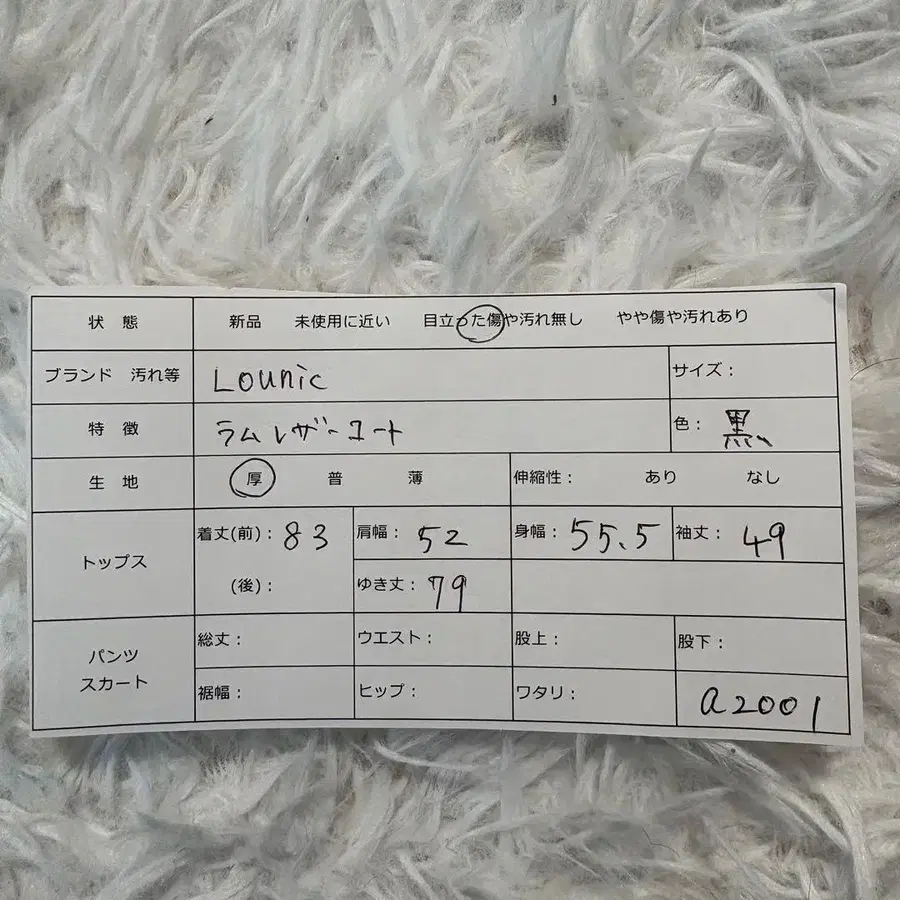 状 態 新品 未使用に近い 目立った傷や汚れ無し やや傷や汚れあり
ブランド 汚れ等 Lounic サイズ：
特 徴 ラムレザーコート 色： 黒
生 地 厚 普 薄 伸縮性： あり なし
トップス 着丈(前)： 83 肩幅： 52 身幅： 55.5 袖丈： 49
(後)： ゆき丈： 79
パンツ スカート 総丈： ウエスト： 股上： 股下：
裾幅： ヒップ： ワタリ： a2001